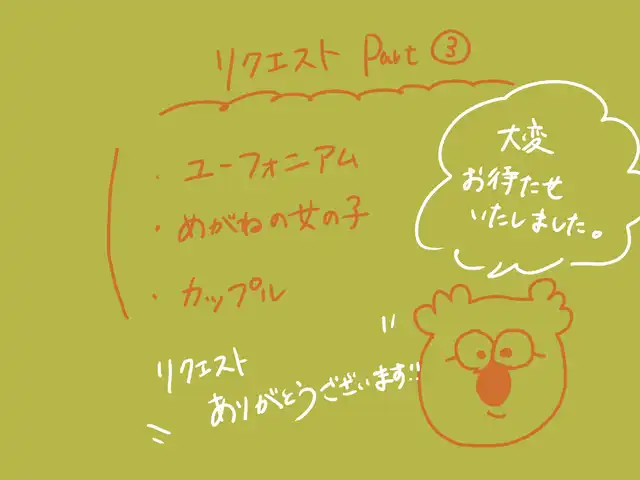 リクエスト Part ③
・ユーフォニアム
・めがねの女の子
・カップル
大変
お待たせ
いたしました。
リクエスト
ありがとうございます!!